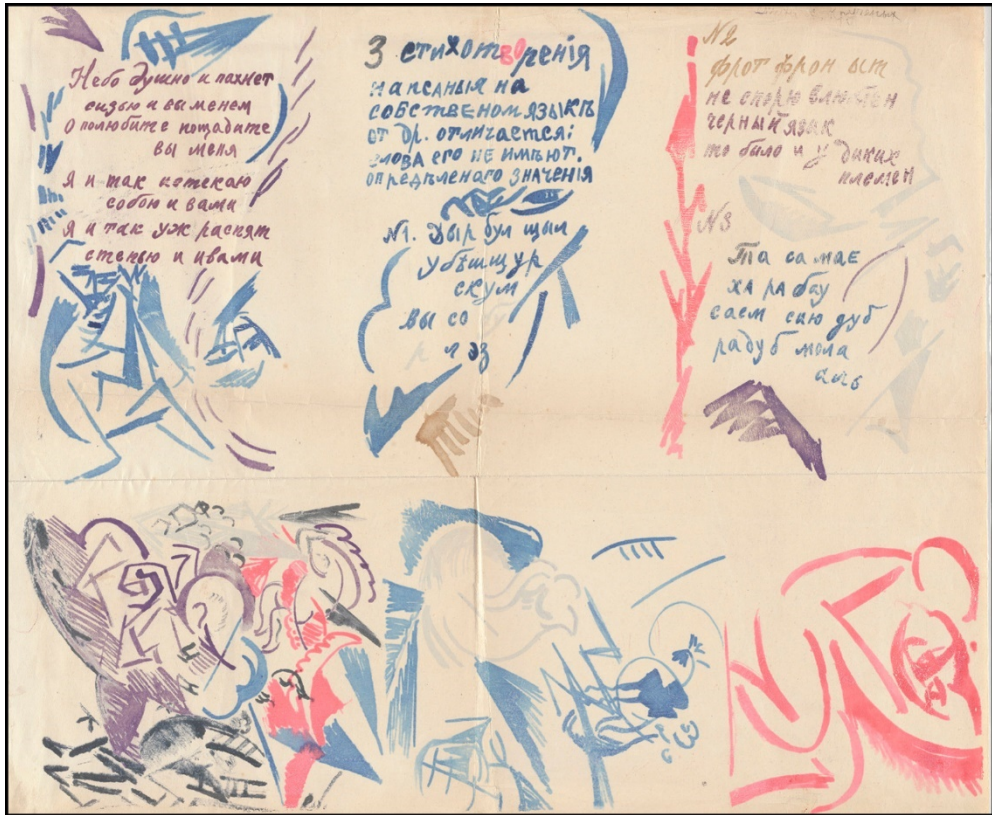 Небо душно и пахнет
сизью и выменем
О полюбите пощадите
вы меня
Я и так истекаю
собою и вами
Я и так уж распят
степью и ивами
3 стихотворенія
напсаныя на
собственом языкѣ
от др. отличается:
слова его не имѣют.
опредѣленаго значенія
№1. Дыр бул щыл
убѣшщур
скум
вы со
р л эз
№2
фрот фрон ыт
не спорю влюблен
черный язык
то было и у диких
племен
№3
Та са мае
ха ра бау
саем сию дуб
радуб мола
аль